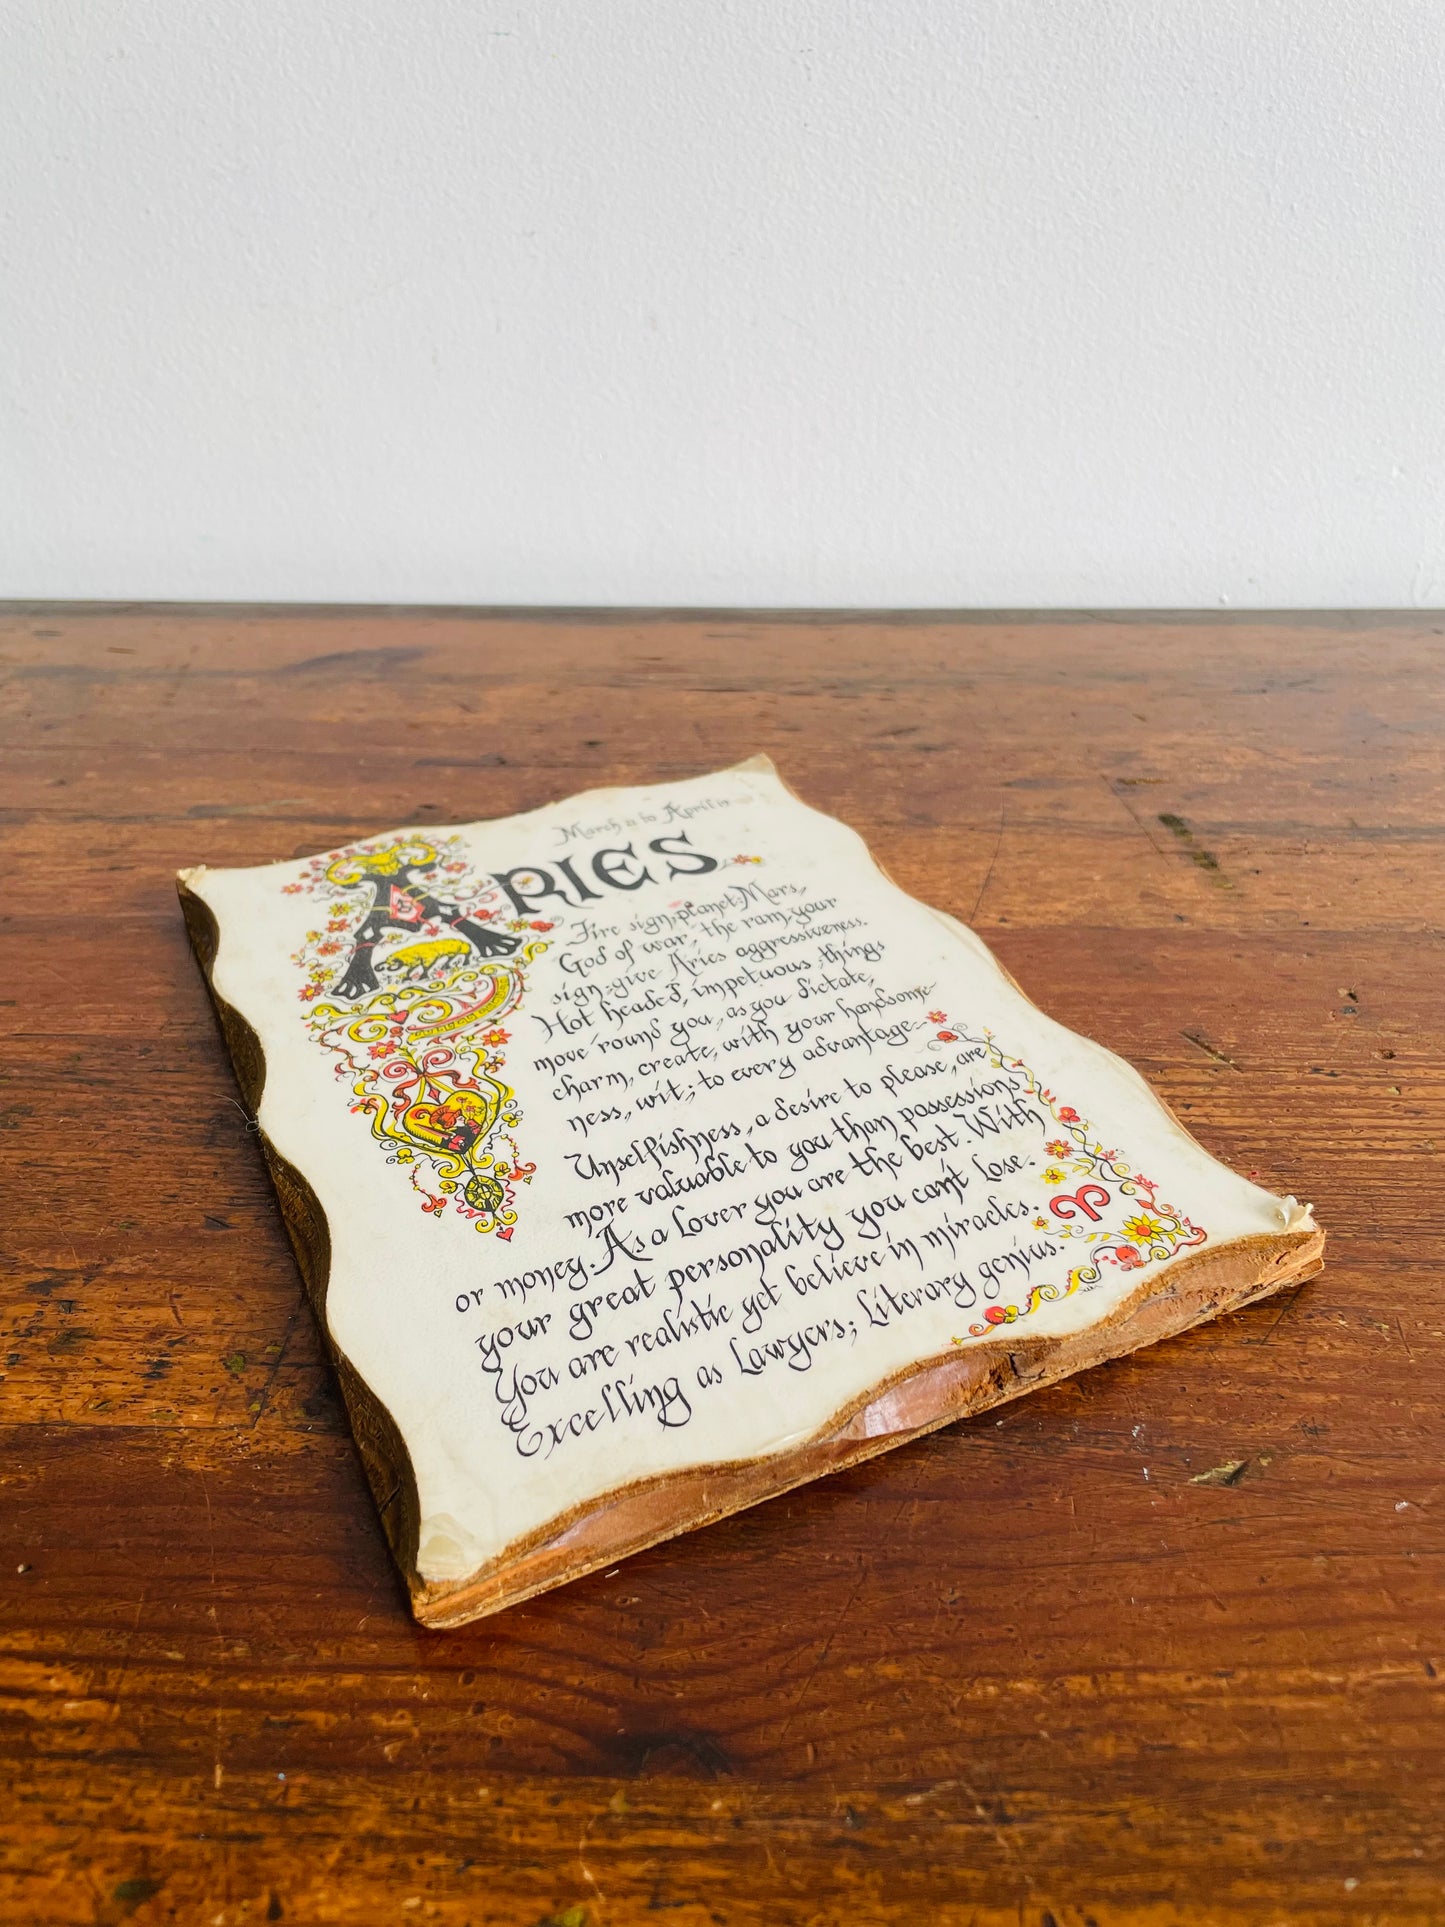 March 21 to April 19
ARIES
Fire sign, planet: Mars,
God of war, the ram, your
sign - give Aries aggressiveness.
Hot headed, impetuous, things
move 'round you, as you dictate,
charm, create, with your handsome-
ness, wit; to every advantage-
Unselfishness, a desire to please, are
more valuable to you than possessions
or money. As a Lover you are the best. With
your great personality you can't lose.
You are realistic yet believe in miracles.
Excelling as Lawyers; Literary genius.